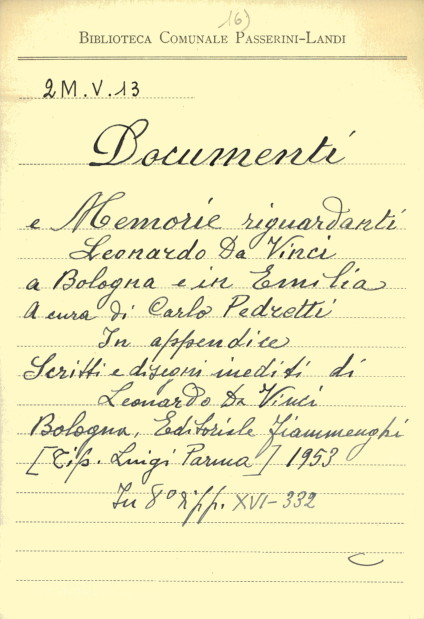 16)
BIBLIOTECA COMUNALE PASSERINI-LANDI
2M.V.13
Documenti
e Memorie riguardanti
Leonardo Da Vinci
a Bologna e in Emilia
A cura di Carlo Pedretti
In appendice
Scritti e disegni inediti di
Leonardo Da Vinci
Bologna, Editoriale Fiammenghi
[Tip. Luigi Parma] 1953
In 8º pp. XVI-332